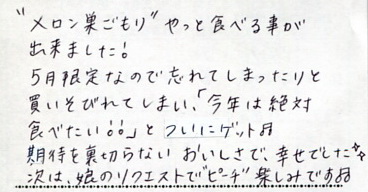 “メロン巣ごもり”やっと食べる事が
出来ました!
5月限定なので忘れてしまったりと
買いそびれてしまい、「今年は絶対
食べたい!!」と ついにゲット♫
期待を裏切らない おいしさで、幸せでした✨
次は、娘のリクエストで“ピーチ”楽しみです♫